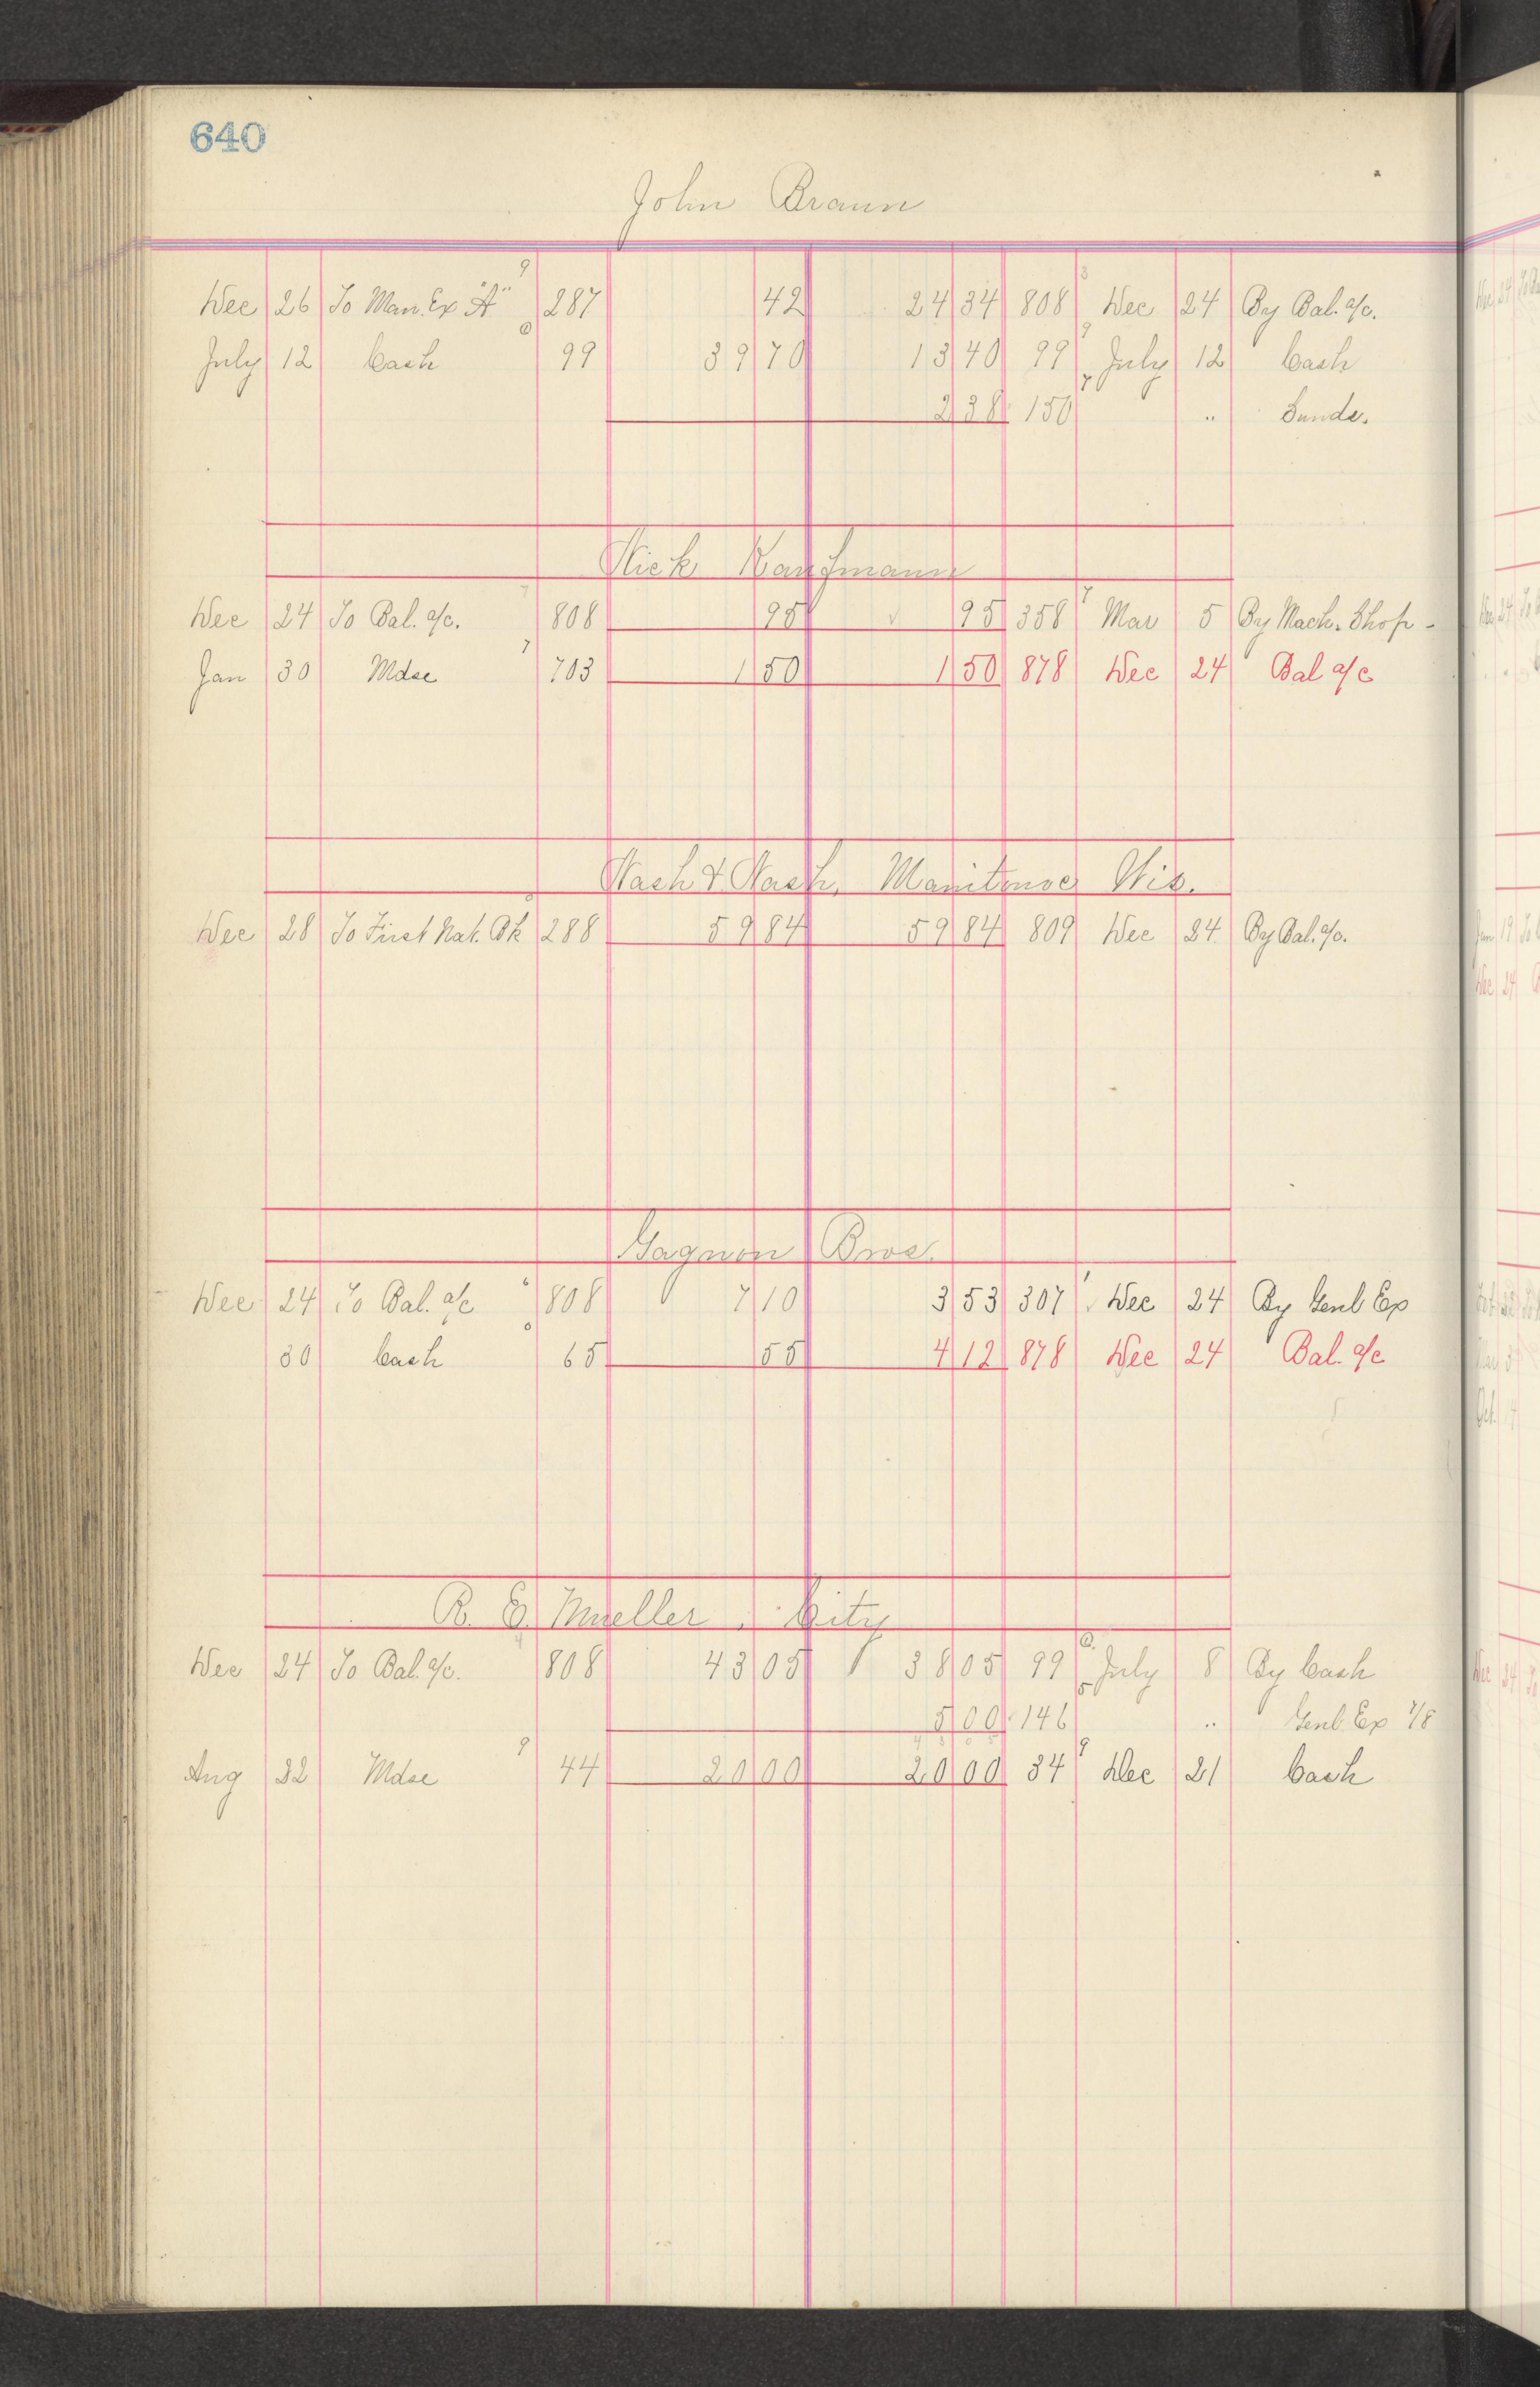 640
John Braun
9
Dec 26 To Man. Ex "A" 287 42 24 34 808 Dec 24 By Bal. a/c.
July 12 Cash 99 39 70 13 40 99 July 12 Cash
2 38 150 " Sunds.
Nick Kaufmann
Dec 24 To Bal. a/c. 808 95 95 358 Mar 5 By Mach. Shop -
Jan 30 Mdse 703 1 50 1 50 878 Dec 24 Bal a/c
Nash & Nash, Manitowoc Wis.
Dec 28 To First Nat. Bk 288 59 84 59 84 809 Dec 24 By Bal. a/c.
Gagnon Bros.
Dec 24 To Bal. a/c 808 7 10 3 53 307 Dec 24 By Genl Ex
30 Cash 65 55 4 12 878 Dec 24 Bal. a/c
R. E. Mueller, City
Dec 24 To Bal. a/c. 808 43 05 38 05 99 July 8 By Cash
5 00 146 " Genl. Ex 7/8
Aug 22 Mdse 44 20 00 20 00 34 Dec 21 Cash